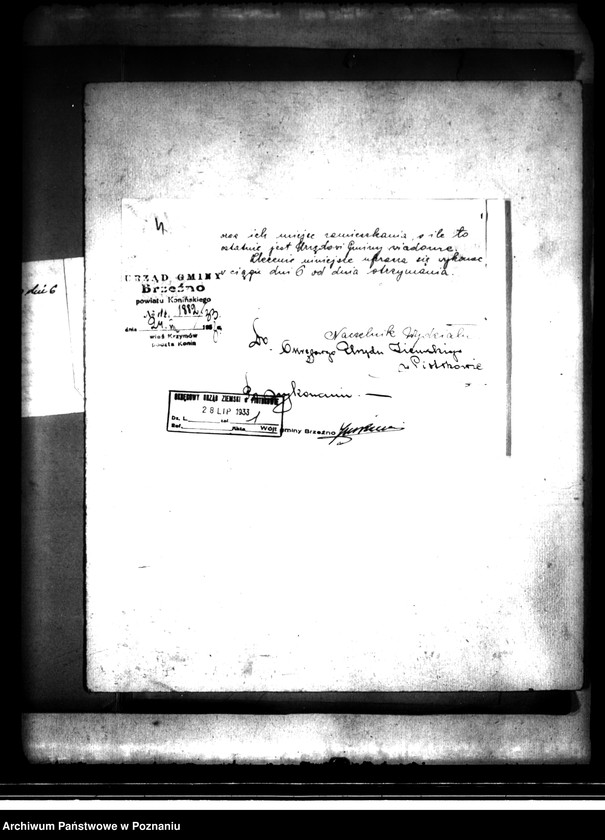 4.
oraz ich miejsce zamieszkania, o ile to
ostatnie jest Urzędowi Gminy wiadome.
Zlecenie niniejsze uprasza się wykonać
w ciągu dni 6 od dnia otrzymania.
dni 6
URZĄD GMINY
Brzeźno
powiatu Konińskiego
1882/33
dnia 24.
wieś Krzymów
poczta Konin
Naczelnik Wydziału
Do
Okręgowego Urzędu Ziemskiego
w Piotrkowie
Po wykonaniu. —
OKRĘGOWY URZĄD ZIEMSKI w PIOTRKOWIE
28 LIP 1933
Dz. L. zał. 1
Ref.
Wójt gminy Brzeźno
Archiwum Państwowe w Poznaniu